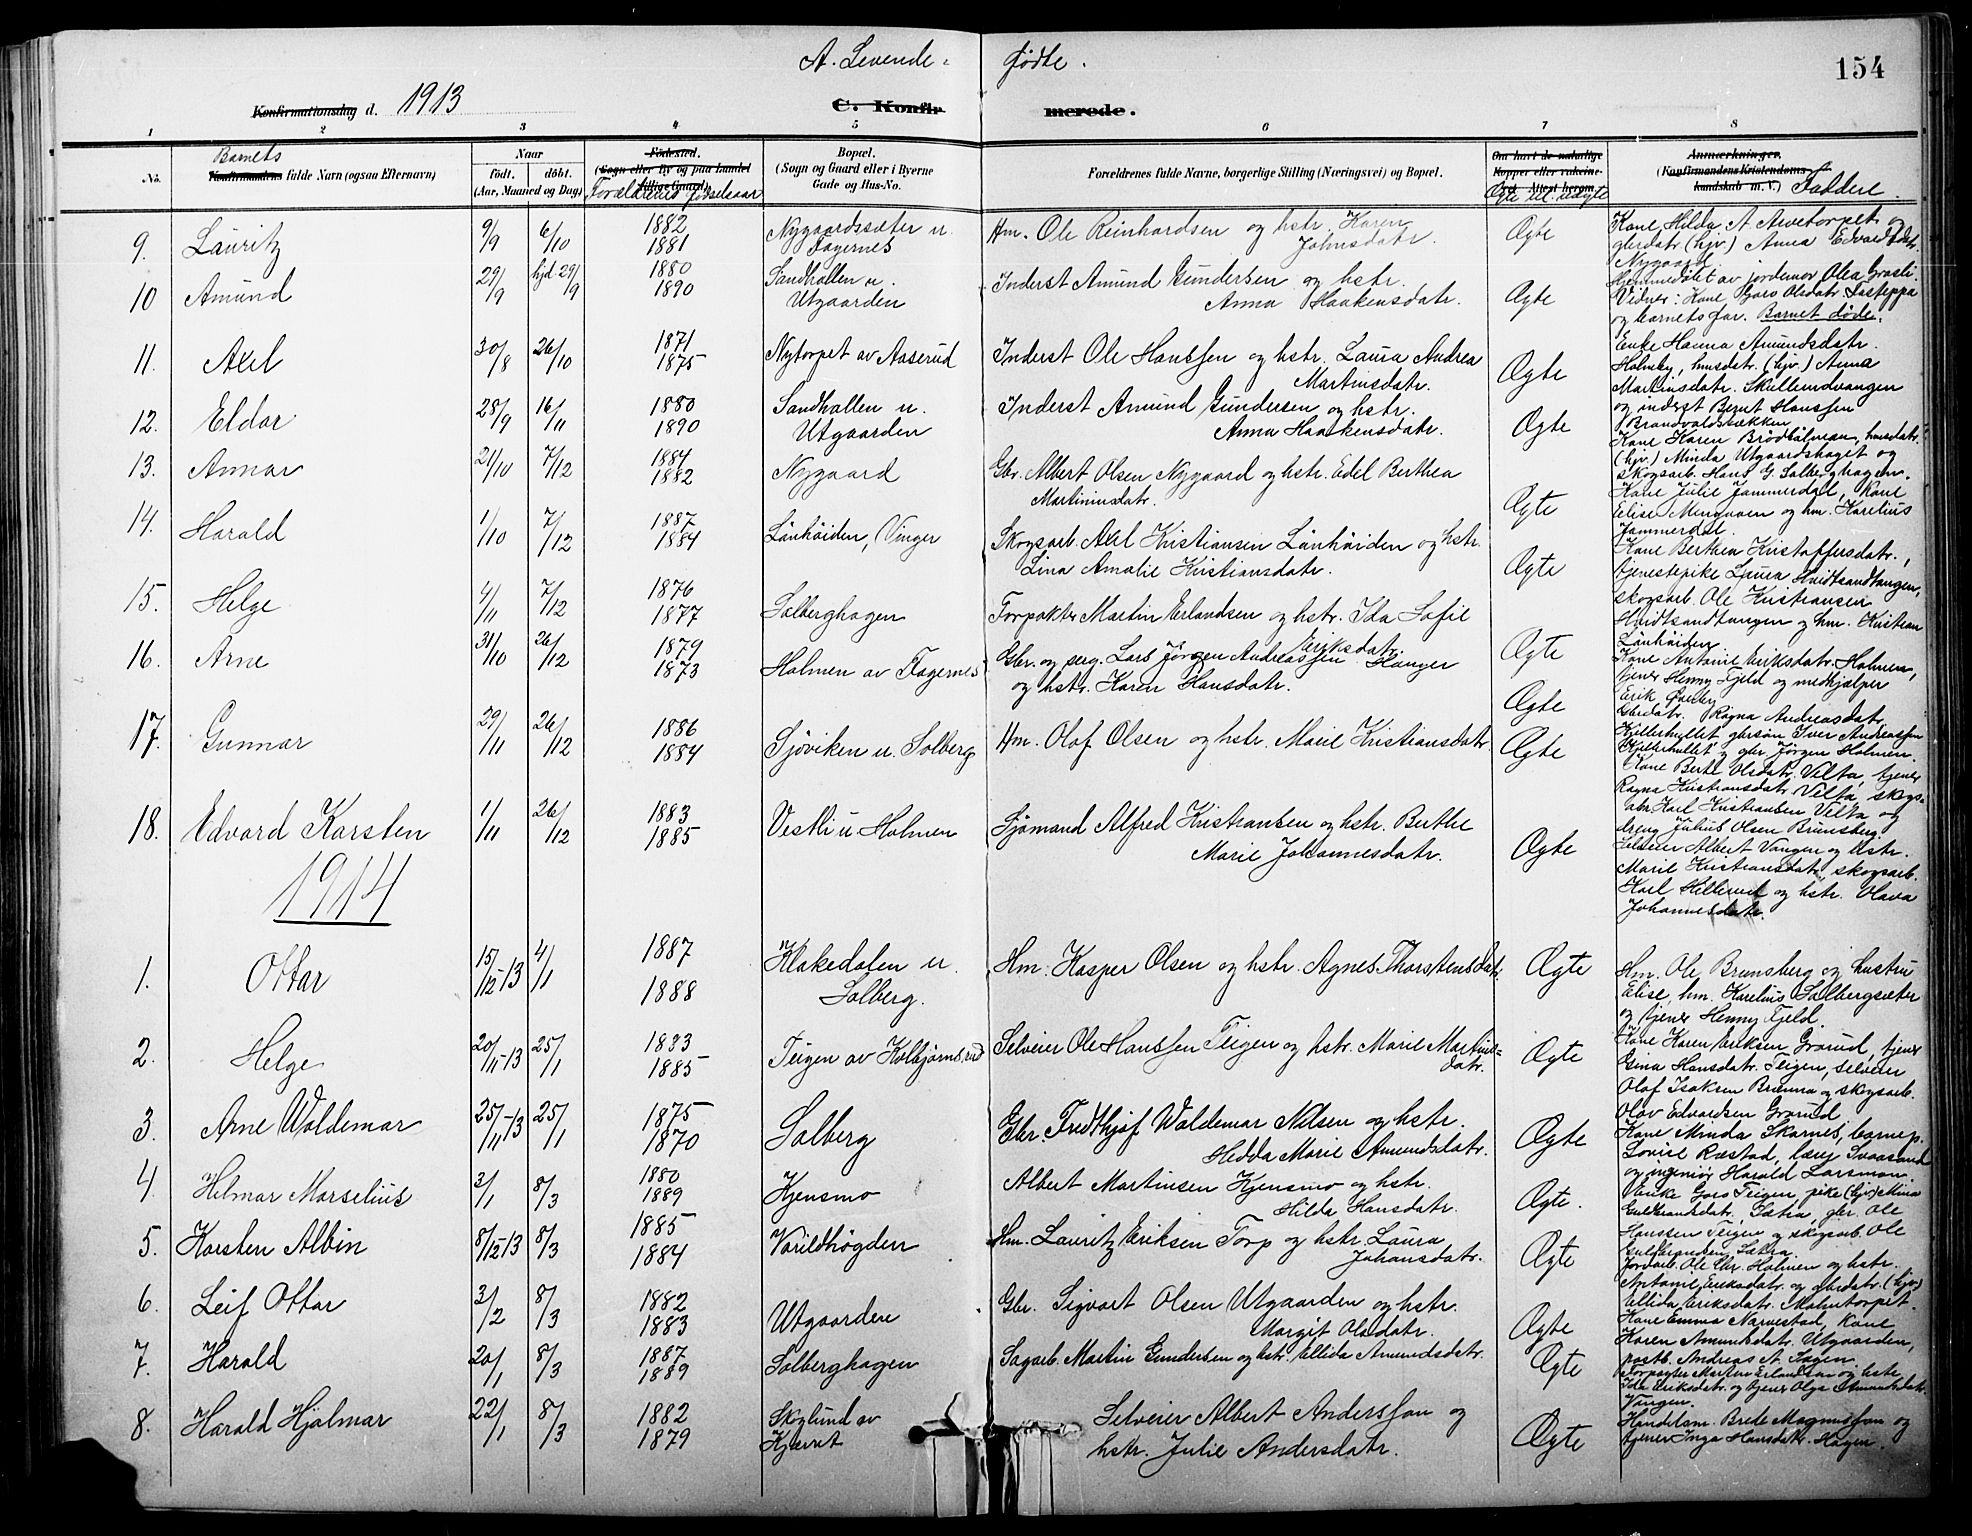 A. Levende fødte.
154
Konfirmationsdag d. 1913
C. Konfirmerede.
1 2 3 4 5 6 7 8
No.
Barnets
Konfirmandens fulde Navn (ogsaa Efternavn)
Naar
født. døbt.
(Aar, Maaned og Dag)
Fødested.
(Sogn eller By og paa Landet tillige Gaard)
Forældrenes fødselsaar
Bopæl.
(Sogn og Gaard eller i Byerne Gade og Hus-No.
Forældrenes fulde Navne, borgerlige Stilling (Næringsvei) og Bopæl.
Om havt de naturlige Kopper eller vaksineret. Attest herom.
Ægte ell. uægte
Anmærkninger.
(Konfirmandens Kristendomskundskab m. V.)
Faddere.
9. Lauritz 9/9 6/10 1882 1881 Nygaardssæter u. Fagernes Hm. Ole Reinhardsen og hstr. Karen Johnsdatr. Ægte Kone Hilda A. Arvetorpet og glerdatr. (hjv.) Anna Edvardsdatr. Nygaard
10 Amund 29/9 hjd 29/9 1880 1890 Sandhallen u. Utgaarden Inderst Amund Gundersen og hstr. Anna Haakensdatr. Ægte Hjemmedøbt av jordemor Olea Grasli. Vidner: Kone Goro Olsdatr. og barnets far. Barnet døde.
11. Axel 30/8 26/10 1871 1875 Nytorpet av Aaserud Inderst Ole Hanssen og hstr. Laura Andrea Martinsdatr. Ægte Enke Hanna Amundsdatr. Holmby, husdatr. (hjv.) Anna Martinsdatr. Skullerudvangen og inderst Bernt Hanssen
12. Eldar 28/9 16/11 1880 1890 Sandhallen u. Utgaarden Inderst Amund Gundersen og hstr. Anna Haakensdatr. Ægte Brandvoldsbakken Kone Karen husdatr. (hjv.) Minda Utgaardshaget og skogsarb. Hans G. Solberghagen.
13. Annar 21/10 7/12 1884 1882 Nygaard Gbr. Albert Olsen Nygaard og hstr. Edel Berthea Martiniusdatr. Ægte Kone Julie Jammerdal, Kone Elise Mengaaen og hm. Karelius Jammerdal.
14. Harald 1/10 7/12 1887 1884 Lönhöiden, Vinger Skogsarb. Axel Kristiansen Lönhöiden og hstr. Lina Amalie Kristiansdatr. Ægte Kone Berthea Kristoffersdatr., tjenestepike Laura Hvidtsandtangen, skogsarb. Ole Kristiansen
15. Helge 4/11 7/12 1876 1877 Solberghagen Forpakter Martin Erlandsen og hstr. Ida Sofie Eriksdatr. Ægte Hvidtsandtangen og hm. Kristian Lönhöiden
16. Arne 31/10 26/12 1879 1873 Holmen av Fagernes Gbr. og serg. Lars Jørgen Andreassen Hanger og hstr. Karen Hansdatr. Ægte Kone Antonie Eriksdatr. Holmen, tjener Henny Fjeld og medhjælper Erik Øverby
17. Gunnar 29/11 26/12 1886 1884 Sjöviken u. Solberg Hm. Olaf Olsen og hstr. Marie Kristiansdatr. Ægte Gbrdatr. Ragna Andreasdatr. Killerhullet gbrsøn Iver Andreassen Killerhullet og gbr. Jørgen Holmen. Kone Berte Olsdatr. Velta, tjener Ragna Kristiansdatr. Velta, skogsabr. Karl Kristiansen Velta og dreng Julius Olsen Brunsberg.
18. Edvard Karsten 1/11 26/12 1883 1885 Vestli u. Holmen Sjömand Alfred Kristiansen og hstr. Berthe Marie Johannesdatr. Ægte Selveier Albert Vangen og hstr. Marie Kristiansdatr., skogsarb. Karl Hillerud og hstr. Olava Johannesdatr.
1914
1. Ottar 15/12-13 4/1 1887 1888 Klakedalen u. Solberg. Hm. Kasper Olsen og hstr. Agnes Thorstensdatr. Ægte Hm. Ole Brunsberg og hustru Elise, hm. Karelius Solbergsæter og tjener Henny Fjeld.
2. Helge 20/11-13 25/1 1883 1885 Teigen av Kolbjørnsrud Selveier Ole Hanssen Teigen og hstr. Marie Martinsdatr. Ægte Kone Karen Eriksen Grorud, tjener Gina Hansdatr. Teigen, selveier Olaf Isaksen Brænna og skogsarb. Olav Edvardsen Grorud
3. Arne Woldemar 25/11-13 25/1 1875 1870 Solberg Gbr. Fredthjof Woldemar Nilsen og hstr. Hedda Marie Amundsdatr. Ægte Kone Minda Skarnes, barnep. Lovise Ræstad, læry Svaasand og ingeniør Harald Larsmoni
4. Helmar Marselius 3/1 8/3 1880 1889 Kjensmo Albert Martinsen Kjensmo og hstr. Hilda Hansdatr. Ægte. Enke Goro Teigen, pike (hjv) Mina Guldbrandsdatr. Sætra, gbr. Ole Hanssen Teigen og skogsab. Ole Gulbrandsen Sætra.
5. Karsten Albin 8/12-13 8/3 1885 1884 Varildhögden Hm. Lauritz Eriksen Torp og hstr. Laura Johansdatr. Ægte Jordarb. Ole Chr. Holmen og hstr. Antonie Eriksdatr. og gbrdatr. (hjv) Ellida Eriksdatr. Malmtorpet.
6. Leif Ottar 3/2 8/3 1882 1883 Utgaarden Gbr. Sigvart Olsen Utgaarden og hstr. Margit Olsdatr. Ægte Kone Emma Narvestad, Kone Karen Amundsdatr. Utgaarden, postb. Andreas A. Sagen.
7. Harald 20/1 8/3 1887 1889 Solberghagen Sagarb. Martin Gundersen og hstr. Ellida Amundsdatr. Ægte Forpagter Martin Erlandsen og hstr. Ida Eriksdatr. og tjener Olga Amundsdatr. Vangen.
8. Harald Hjalmar 22/1 8/3 1882 1879 Skoglund av Kjærret Selveier Albert Andersson og hstr. Julie Andersdatr. Ægte Handelsm. Brede Magnussen og tjener Inga Hansdatr. Hagen.